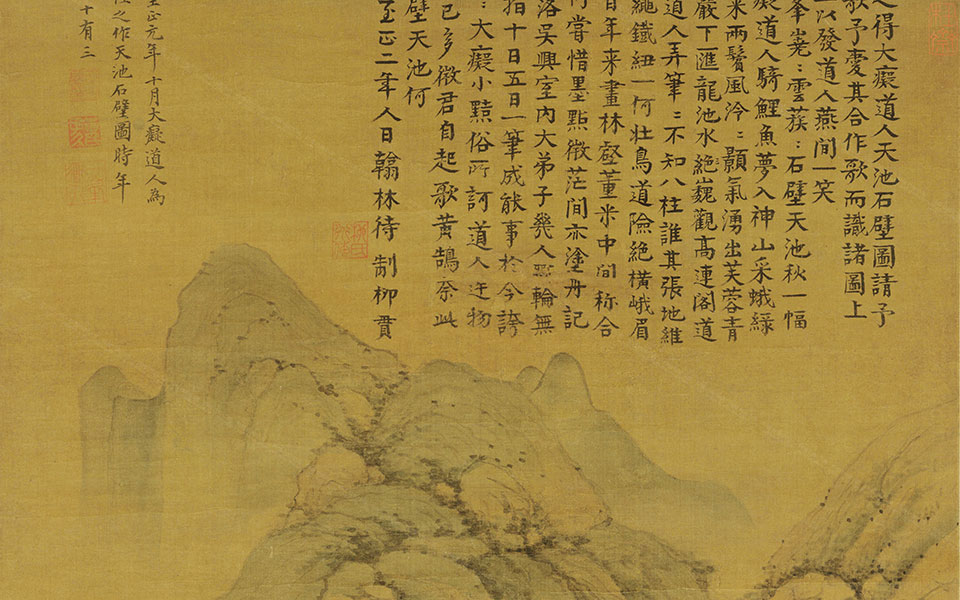 得大癡道人天池石壁圖請予
歌予愛其合作歌而識諸圖上
以發道人燕間一笑
峯嶤〻雲蔟〻石壁天池秋一幅
癡道人騎鯉魚夢入神山采蛾綠
米兩鬢風泠〻顥氣湧出芙蓉青
嚴下匯龍池水絕巍觀高連閣道
道人弄筆〻不知八柱誰其張地維
繩鐵紐一何壯鳥道險絕橫峨眉
百年来畫林壑董米中間称合
何嘗惜墨點微茫間亦塗丹記
落吳興室內大弟子幾人斲輪無
拍十日五日一筆成能事於今誇
〻大癡小黠俗所訶道人迕物
已多徵君自起歌黃鵠奈此
壁天池何
至正二年人日翰林待制柳貫
至正元年十月大癡道人為
性之作天池石壁圖時年
十有三